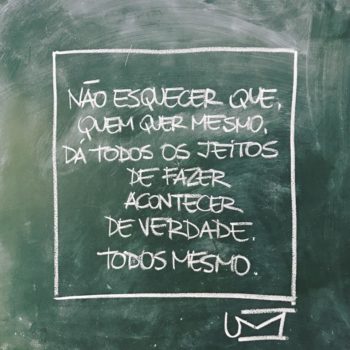 NÃO ESQUECER QUE,
QUEM QUER MESMO,
DÁ TODOS OS JEITOS
DE FAZER
ACONTECER
DE VERDADE.
TODOS MESMO.